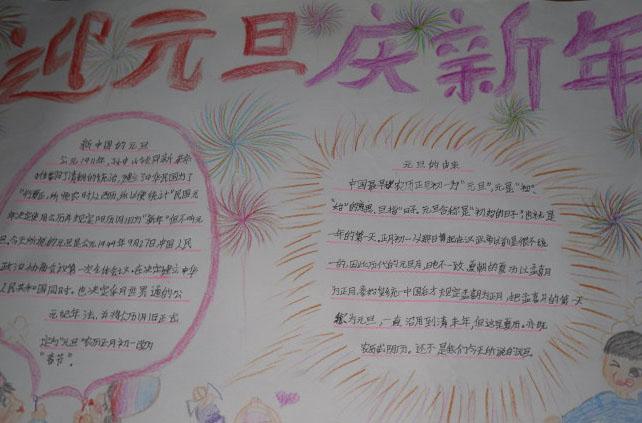 迎元旦庆新年
新中国的元旦
公元1911年,孙中山
了清朝的统治,建立了中华民国为了
"行夏正,所以顺农时,从西历,所以便统计"民国元
年决定使用公历并规定阳历1月1日为"新年"但不叫元
旦。今天所说的元旦是公元1949年9月27日,中国人民
政治协商会议第一次全体会议,在决定建立中华
人民共和国同时,也决定采用世界通的公
元纪年法,并将公历1月1日正式
定为"元旦"农历正月初一改为
"春节"。
元旦的由来
中国最早农历正月初一为"元旦",元是"初"、
"始"的意思,旦指"日子",元旦合称是"初始的日子",也就是
一年的第一天。正月初一从哪日算起在汉武帝以前是很不统
一的,因此历代的元旦月、日也不一致夏朝的夏历以孟春月
为正月
为元旦,一直沿用到清末年,但这是夏历,亦既
农历或阴历,还不是我们今天所说的元旦。